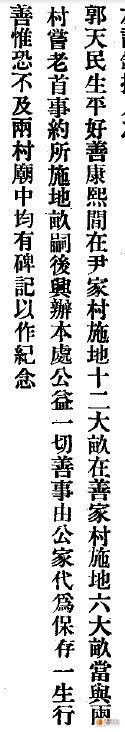 郭天民生平好善康熙間在尹家村施地十二大畝在善家村施地六大畝當與兩
村嘗老首事約所施地畝嗣後興辦本處公益一切善事由公家代爲保存一生行
善惟恐不及兩村廟中均有碑記以作紀念